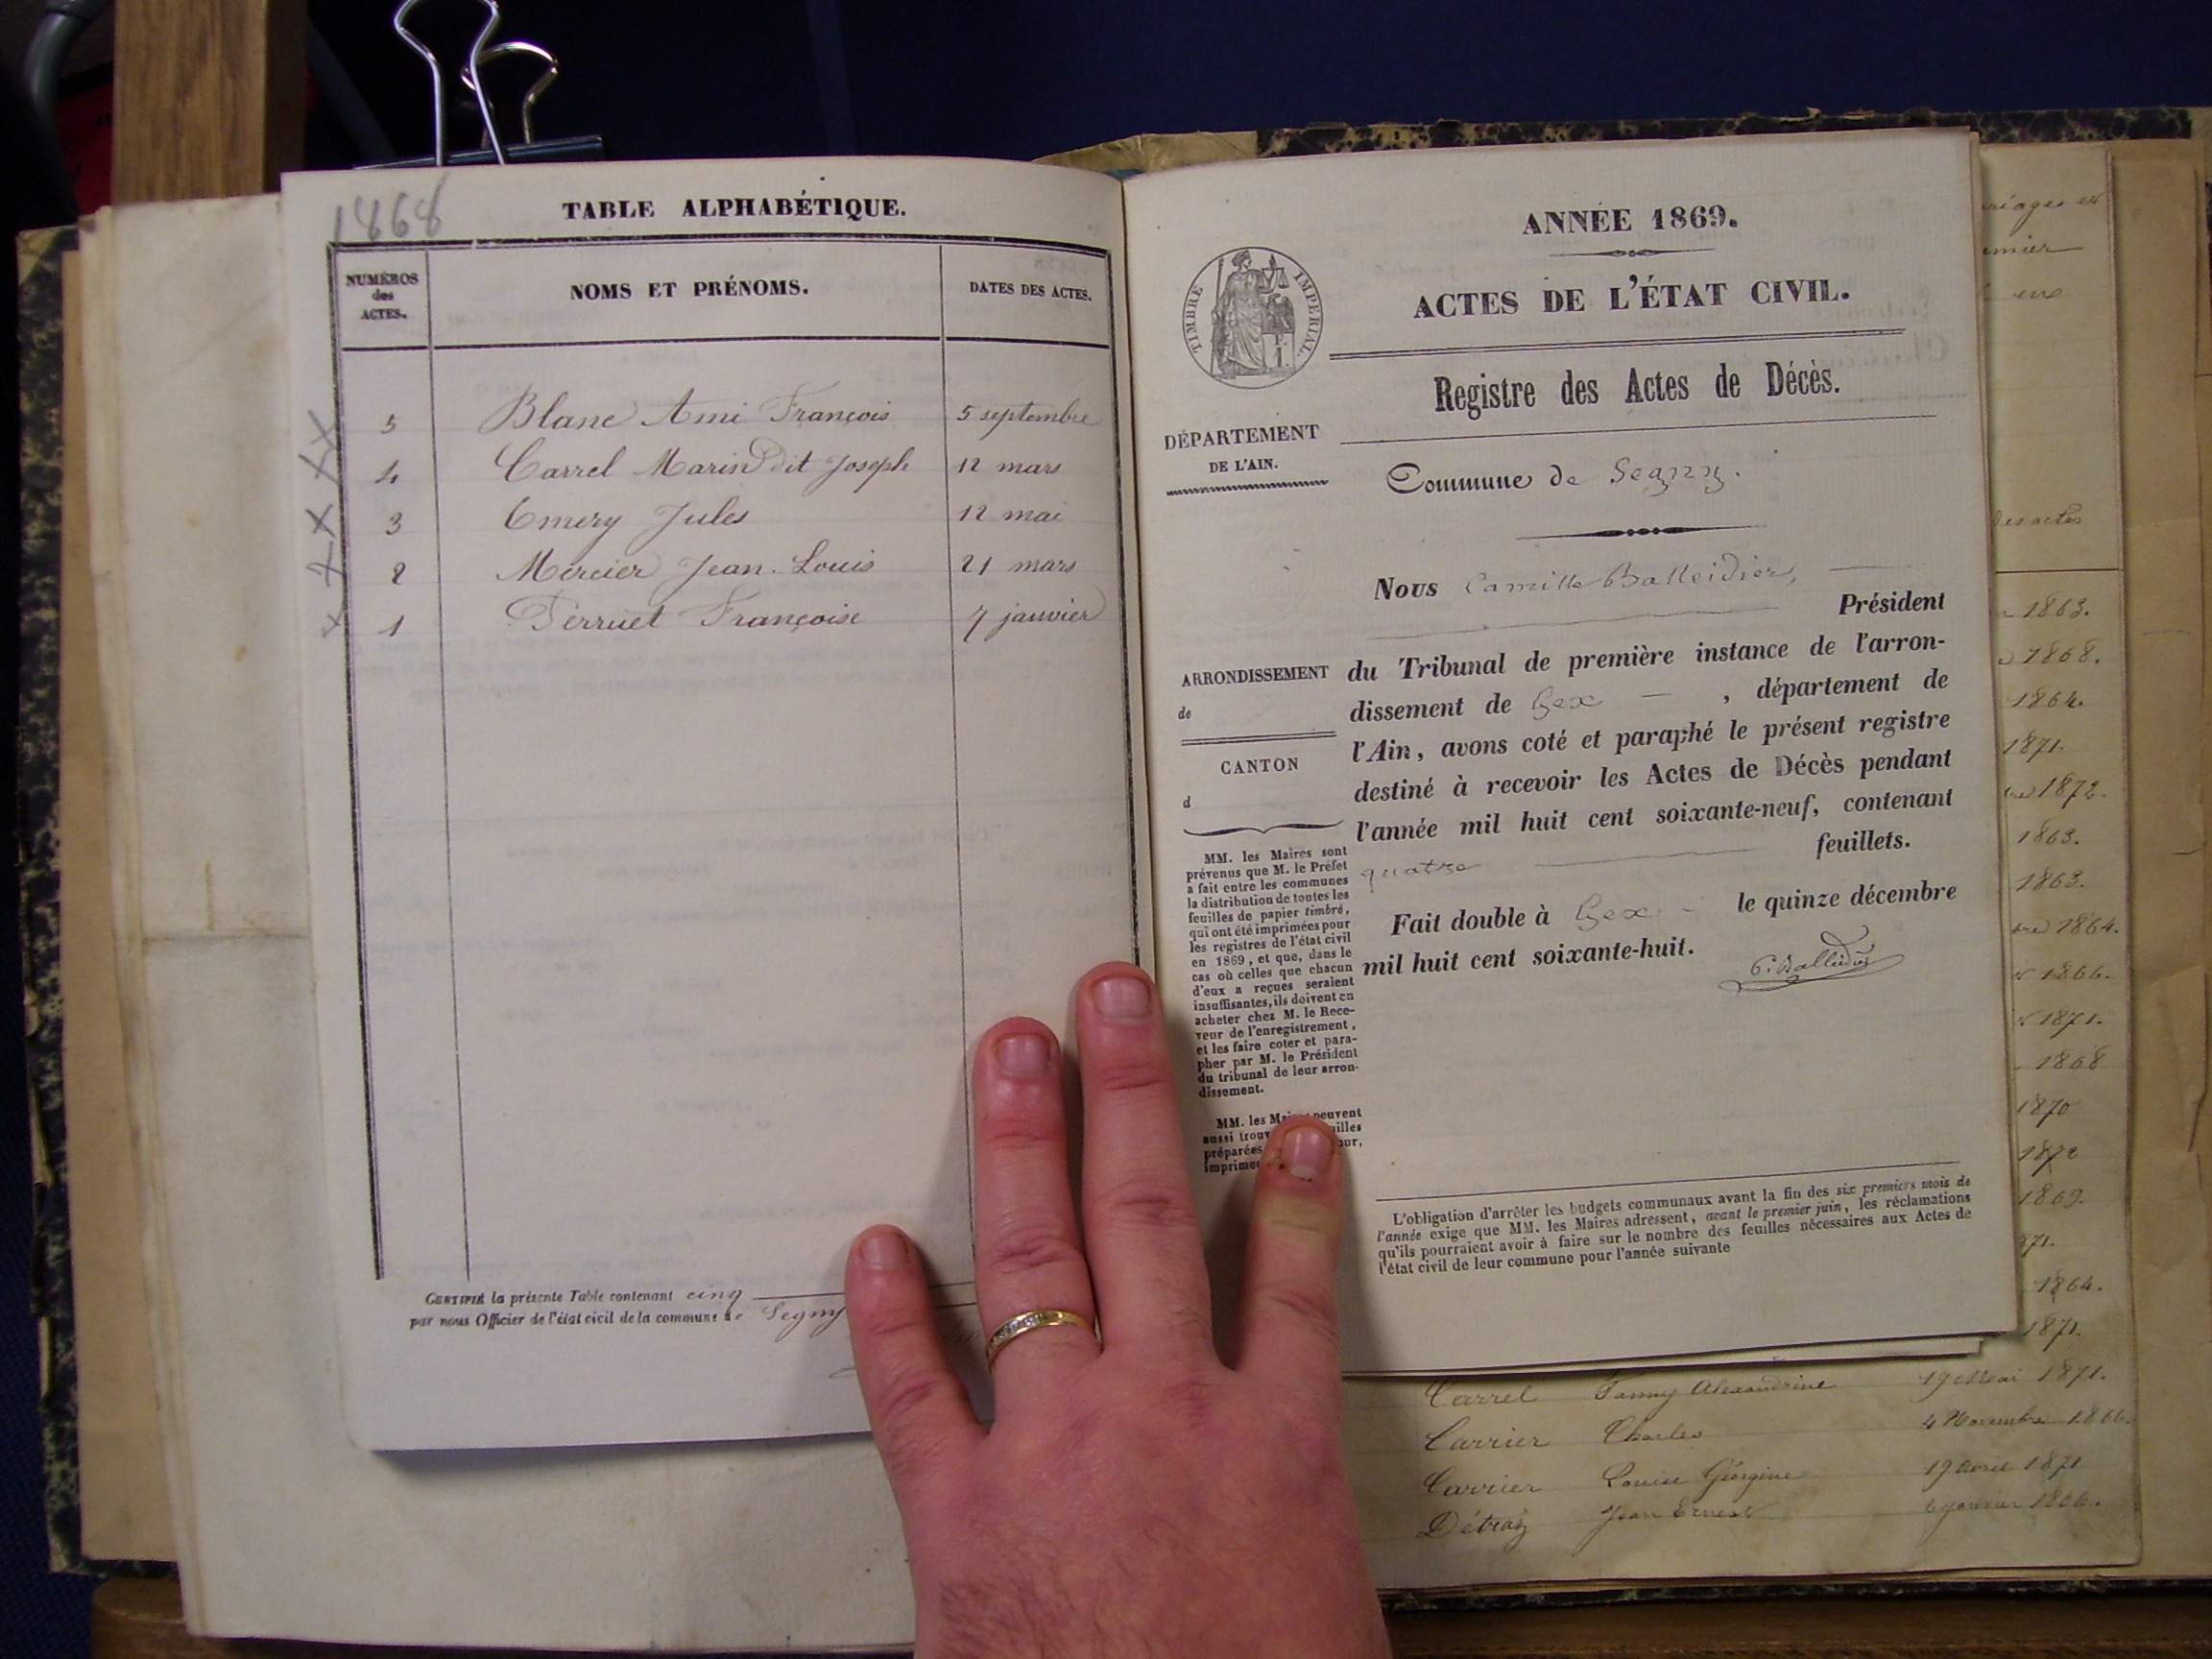 1868
TABLE ALPHABÉTIQUE.
NUMÉROS
des
ACTES.
NOMS ET PRÉNOMS.
DATES DES ACTES.
5 Blanc Ami François 5 septembre
4 Carrel Marin dit Joseph 12 mars
3 Emery Jules 12 mai
2 Mercier Jean-Louis 21 mars
1 Perruet Françoise 7 janvier
CERTIFIÉ la présente Table contenant cinq
par nous Officier de l'état civil de la commune de Segny
ANNÉE 1869.
TIMBRE IMPÉRIAL.
ACTES DE L'ÉTAT CIVIL.
Registre des Actes de Décès.
DÉPARTEMENT
DE L'AIN.
Commune de Segny.
Nous Camille Balleidier,
Président
ARRONDISSEMENT
de
CANTON
d
du Tribunal de première instance de l'arron-
dissement de Gex , département de
l'Ain, avons coté et paraphé le présent registre
destiné à recevoir les Actes de Décès pendant
l'année mil huit cent soixante-neuf, contenant
quatre feuillets.
Fait double à Gex le quinze décembre
mil huit cent soixante-huit.
C. Balleidier
MM. les Maires sont
prévenus que M. le Préfet
a fait entre les communes
la distribution de toutes les
feuilles de papier timbré,
qui ont été imprimées pour
les registres de l'état civil
en 1869, et que, dans le
cas où celles que chacun
d'eux a reçues seraient
insuffisantes, ils doivent en
acheter chez M. le Rece-
veur de l'enregistrement,
et les faire coter et para-
pher par M. le Président
du tribunal de leur arron-
dissement.
MM. les Maires peuvent
aussi trouv
préparées
imprime
L'obligation d'arrêter les budgets communaux avant la fin des six premiers mois de
l'année exige que MM. les Maires adressent, avant le premier juin, les réclamations
qu'ils pourraient avoir à faire sur le nombre des feuilles nécessaires aux Actes de
l'état civil de leur commune pour l'année suivante
des actes
1863.
1868.
1864.
1871.
1872.
1863.
1863.
1864.
1866.
1871.
1868
1870
1872
1869.
71.
1864.
1871.
Carrel Fanny Alexandrine 19 Mai 1871.
Carrier Charles 4 Novembre 1866.
Carrier Louise Géorgine 19 avril 1871
Détraz Jean Ernest janvier 1866.